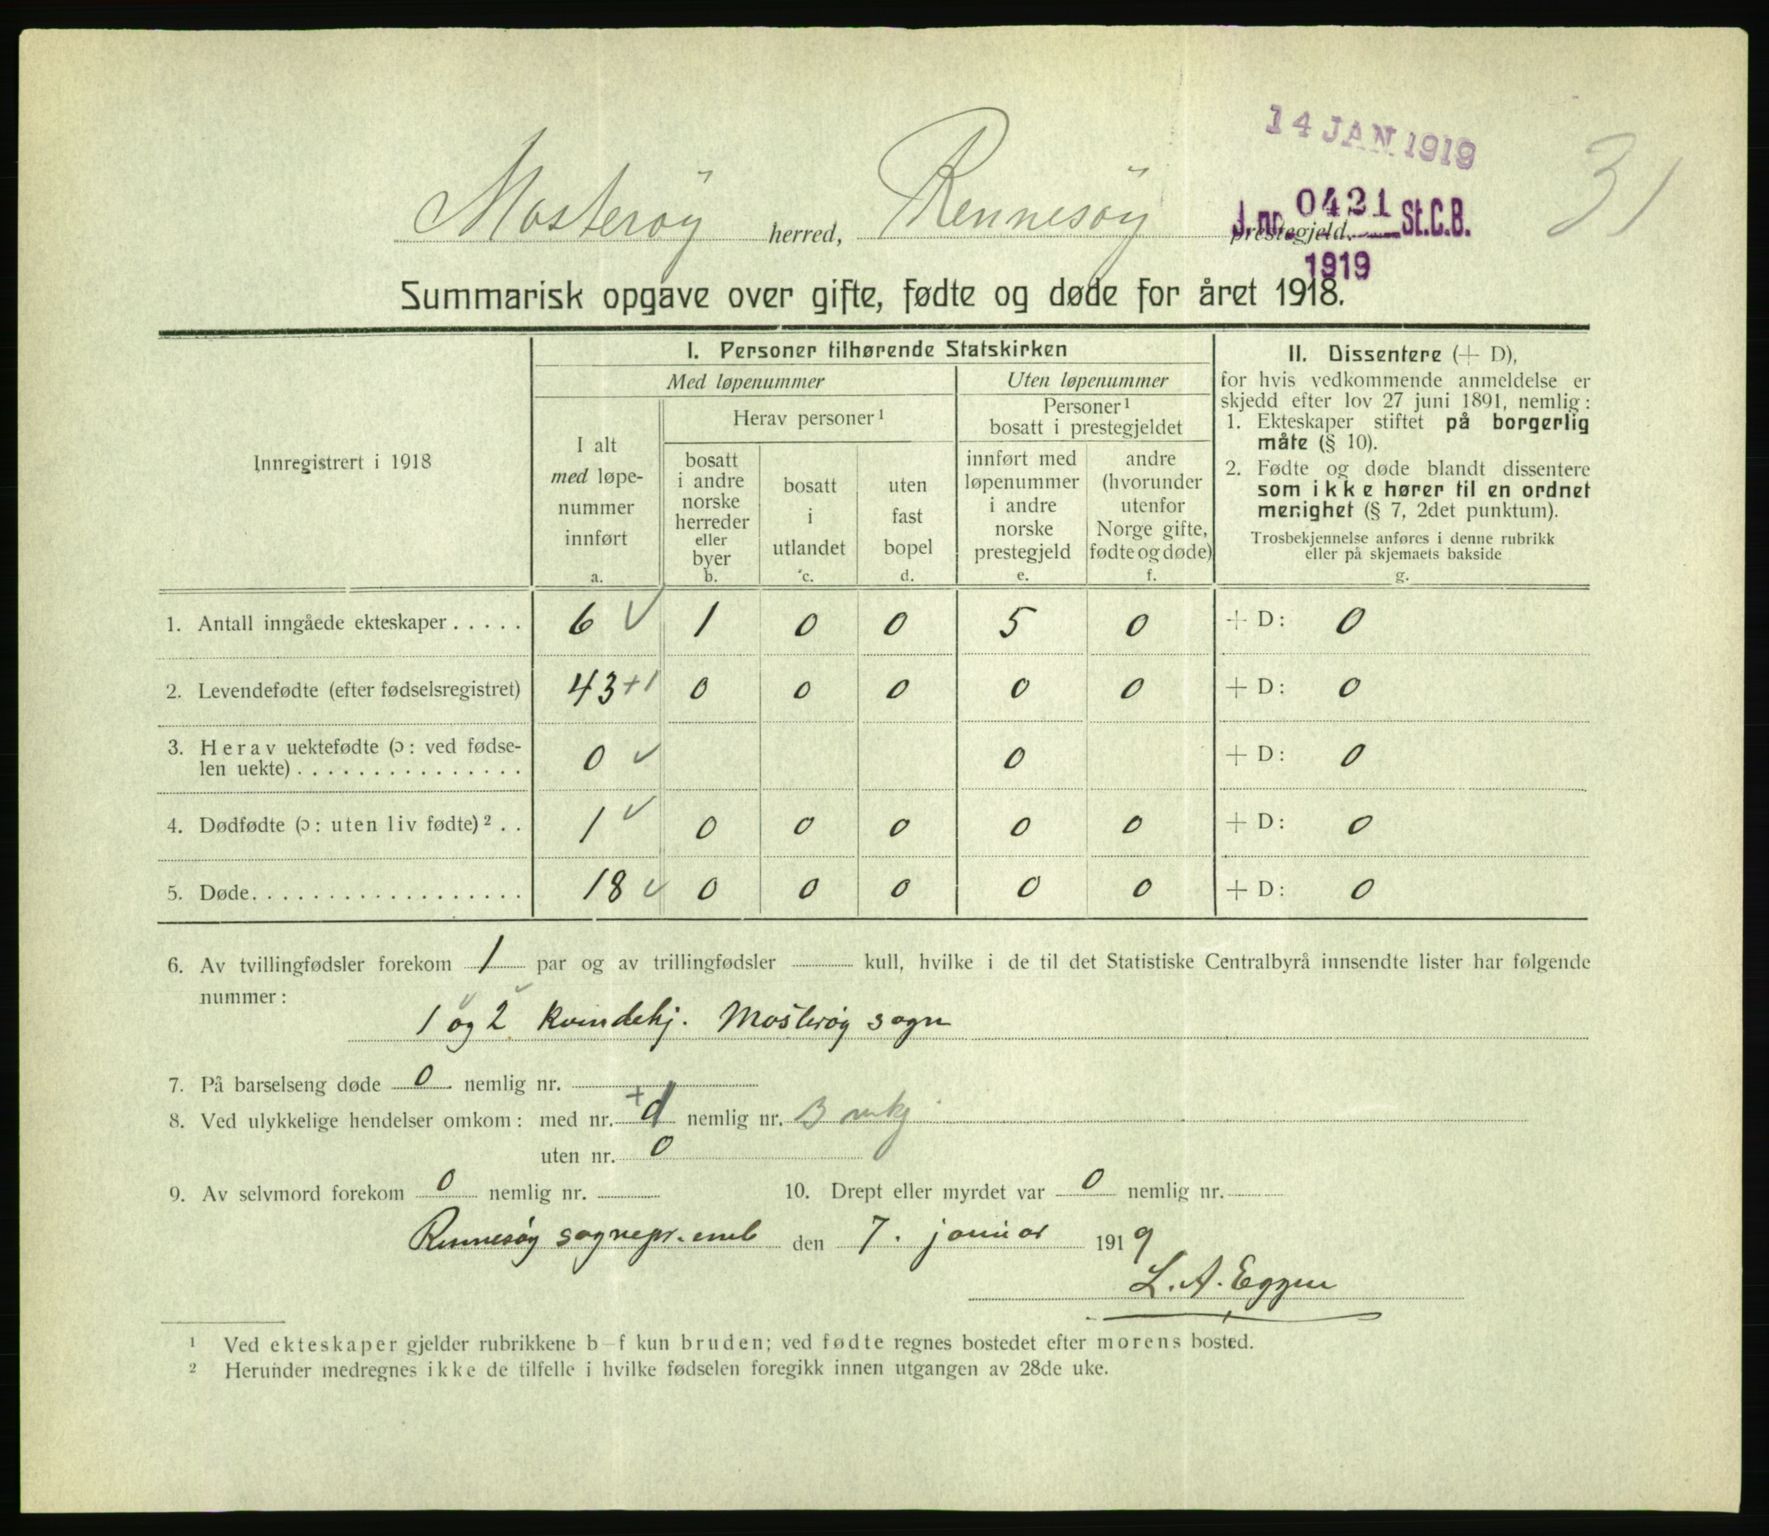 14 JAN 1919
31
Mosterøy herred, Rennesøy prestegjeld.
J.nr. 0421 St.C.B.
1919
Summarisk opgave over gifte, fødte og døde for året 1918.
Innregistrert i 1918
I. Personer tilhørende Statskirken
Med løpenummer
Uten løpenummer
I alt
med løpe-
nummer
innført
a.
Herav personer¹
bosatt
i andre
norske
herreder
eller
byer
b.
bosatt
i
utlandet
c.
uten
fast
bopel
d.
Personer¹
bosatt i prestegjeldet
innført med
løpenummer
i andre
norske
prestegjeld
e.
andre
(hvorunder
utenfor
Norge gifte,
fødte og døde)
f.
II. Dissentere (+ D),
for hvis vedkommende anmeldelse er
skjedd efter lov 27 juni 1891, nemlig:
1. Ekteskaper stiftet på borgerlig
måte (§ 10).
2. Fødte og døde blandt dissentere
som ikke hører til en ordnet
menighet (§ 7, 2det punktum).
Trosbekjennelse anføres i denne rubrikk
eller på skjemaets bakside
g.
1. Antall inngåede ekteskaper..... 6 ✓ 1 0 0 5 0 + D: 0
2. Levendefødte (efter fødselsregistret) 43 +1 0 0 0 0 0 + D: 0
3. Herav uektefødte (ɔ: ved fødse-
len uekte)............... 0 ✓ 0 + D: 0
4. Dødfødte (ɔ: uten liv fødte)².. 1 ✓ 0 0 0 0 0 + D: 0
5. Døde.................. 18 ✓ 0 0 0 0 0 + D: 0
6. Av tvillingfødsler forekom 1 par og av trillingfødsler ........ kull, hvilke i de til det Statistiske Centralbyrå innsendte lister har følgende
nummer:
1 og 2 kvindekj. Mosterøy sogn
7. På barselseng døde 0 nemlig nr.
8. Ved ulykkelige hendelser omkom: med nr. +1 nemlig nr. 3 mkj
uten nr. 0
9. Av selvmord forekom 0 nemlig nr.
10. Drept eller myrdet var 0 nemlig nr.
Rennesøy sognepr.emb den 7. januar 1919
L. A. Eggen
¹ Ved ekteskaper gjelder rubrikkene b–f kun bruden; ved fødte regnes bostedet efter morens bosted.
² Herunder medregnes ikke de tilfelle i hvilke fødselen foregikk innen utgangen av 28de uke.